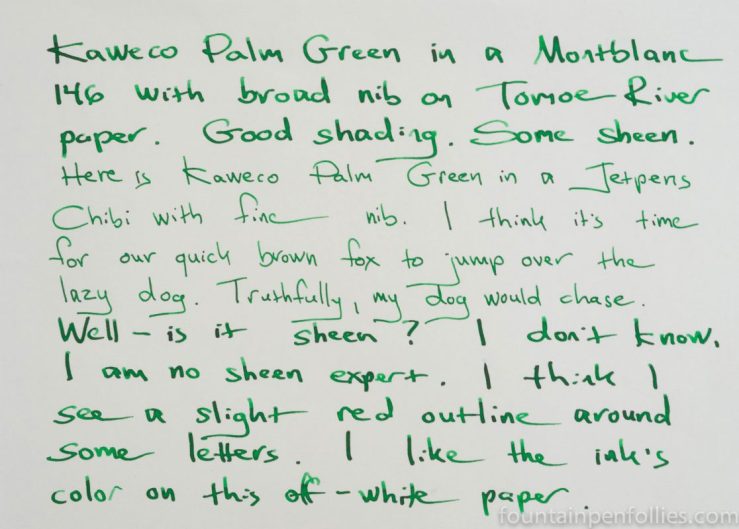 Kaweco Palm Green in a Montblanc
146 with broad nib on Tomoe River
paper. Good shading. Some sheen.
Here is Kaweco Palm Green in a Jetpens
Chibi with fine nib. I think it's time
for our quick brown fox to jump over the
lazy dog. Truthfully, my dog would chase.
Well - is it sheen? I don't know.
I am no sheen expert. I think I
see a slight red outline around
some letters. I like the ink's
color on this off-white paper.
fountainpenfollies.com